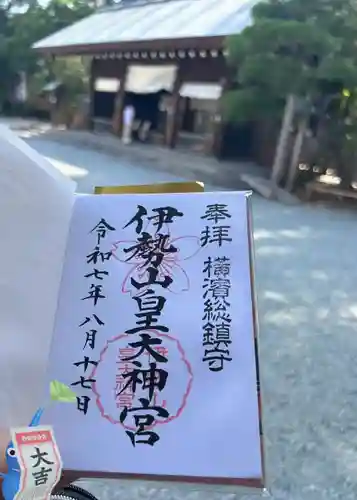 奉拝
横濱総鎮守
伊勢山皇大神宮
令和七年八月十七日
大吉